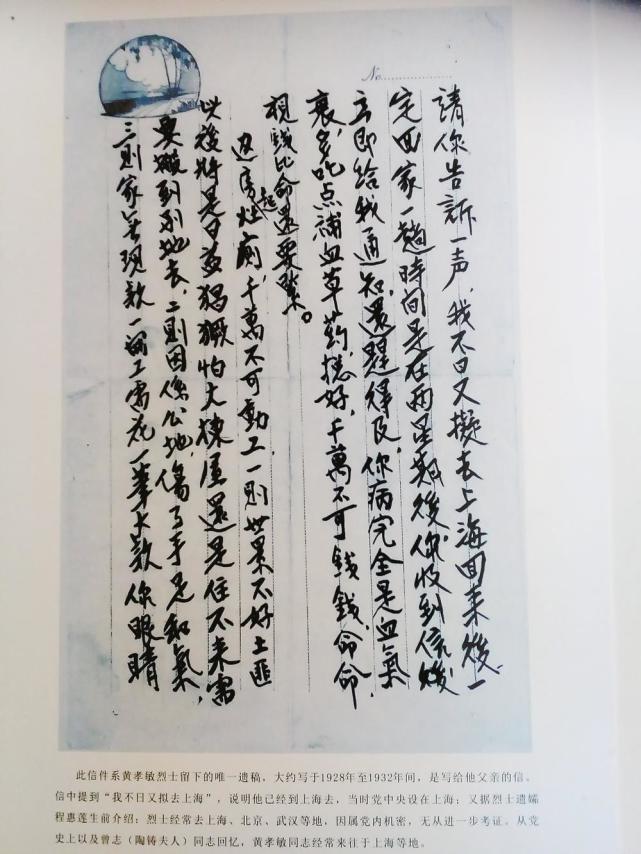 No.
請你告訴一声,我不日又擬去上海回来後,一
定回家一趟時間是在两星期後。你收到信後
立即给我通知,還趕得及,你病完全是血氣
衰,多吃点補血草葯,好,千萬不可錢錢,命命,
視錢比命還要緊。
起
灶廁,千萬不可動工,一則世界不好土匪
以後將是日益猖獗怕大棟屋還是住不来需
要搬到別地去,二則因係公地,傷了手足和氣,
三則家無現款一工需花一筆大款你眼睛
此信件系黄孝敏烈士留下的唯一遗稿,大约写于1928年至1932年间,是写给他父亲的信。
信中提到“我不日又拟去上海”,说明他已经到上海去,当时党中央设在上海;又据烈士遗孀
程惠莲生前介绍:烈士经常去上海、北京、武汉等地,因属党内机密,无从进一步考证。从党
史上以及曾志(陶铸夫人)同志回忆,黄孝敏同志经常来往于上海等地。